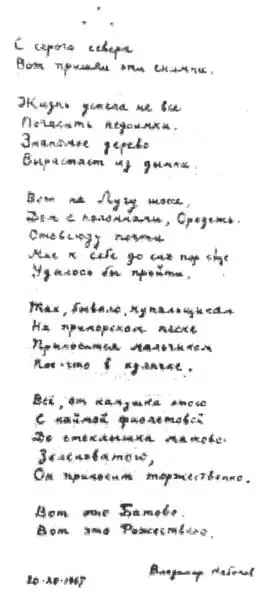 С серого севера
Вот пришли эти снимки.
Жизнь успела не все
Погасить недоимки.
Знакомое дерево
Вырастает из дымки.
Вот на Лугу шоссе,
Дом с колоннами, Оредежь.
Отовсюду почти
Мне к себе до сих пор еще
Удалось бы пройти.
Так, бывало, купальщикам
На приморском песке
Приносится мальчиком
Кое-что в кулачке.
Всё, от камушка этого
С каймой фиолетовой
До стеклышка матово-
Зеленоватого,
Он приносит торжественно.
Вот это Батово.
Вот это Рожествено.
Владимир Набоков
20-XII-1967